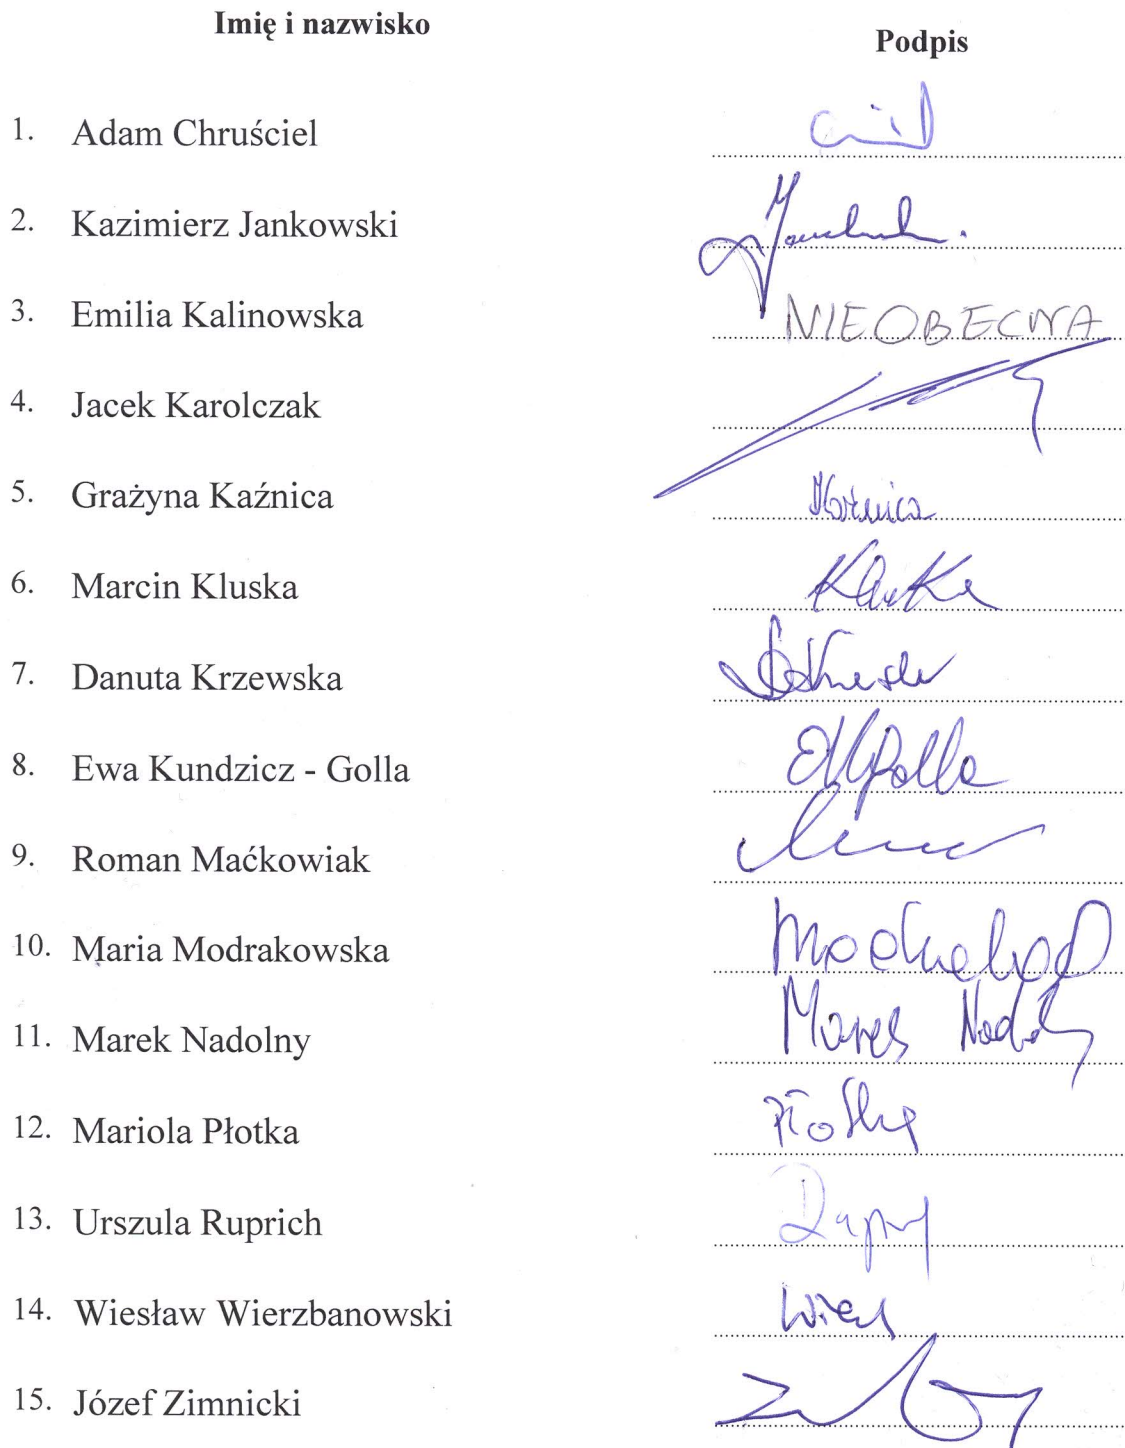 Imię i nazwisko Podpis
1. Adam Chruściel
2. Kazimierz Jankowski
3. Emilia Kalinowska NIEOBECNA
4. Jacek Karolczak
5. Grażyna Kaźnica Kaźnica
6. Marcin Kluska
7. Danuta Krzewska
8. Ewa Kundzicz - Golla
9. Roman Maćkowiak
10. Maria Modrakowska
11. Marek Nadolny Marek
12. Mariola Płotka
13. Urszula Ruprich
14. Wiesław Wierzbanowski
15. Józef Zimnicki